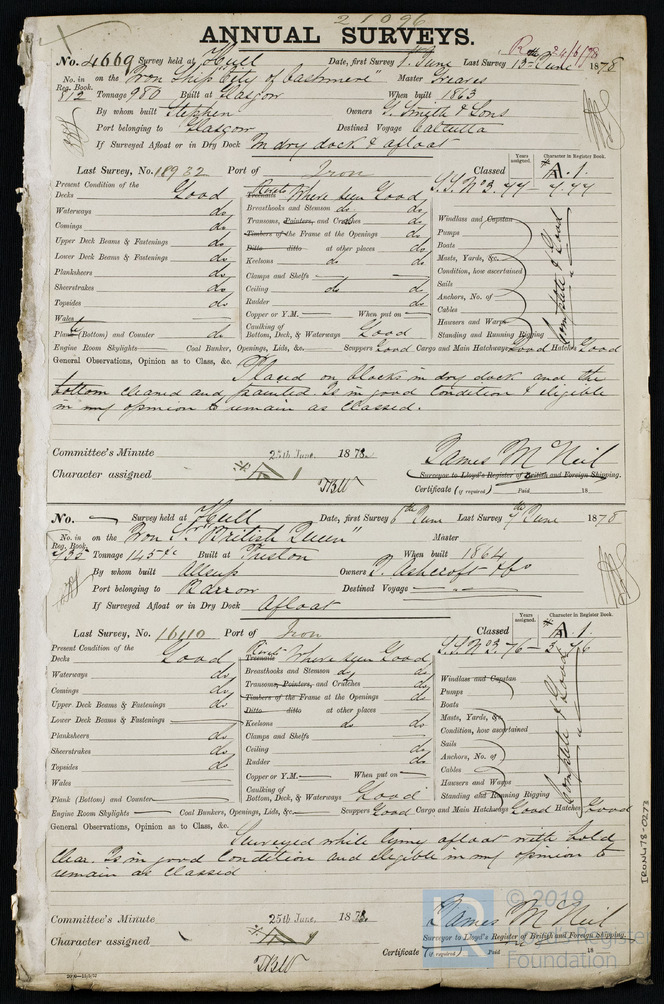 21096
ANNUAL SURVEYS.
No. 4669 Survey held at Hull Date, first Survey 1st June Last Survey 13 June 1878
No. in Reg. Book. on the "Iron Ship "City of Cashmere" Master Greaves
512 Tonnage 980 Built at Glasgow When built 1863
By whom built Stephen Owners G. Smith & Sons
Port belonging to Glasgow Destined Voyage Calcutta
If Surveyed Afloat or in Dry Dock In dry dock & afloat
Years assigned. Character in Register Book.
Last Survey, No. 18932 Port of Iron Classed A.1.
S.S. No 3. 77 - 4,77
Present Condition of the
Decks Good Treenails Rivets Where seen Good
Waterways do Breasthooks and Stemson do do Windlass and Capstan
Comings do Transoms, Pointers, and Crutches do Pumps
Upper Deck Beams & Fastenings do Timbers of the Frame at the Openings do Boats
Lower Deck Beams & Fastenings do Ditto ditto at other places do Masts, Yards, &c.
Planksheers do Keelsons do do Condition, how ascertained
Sheerstrakes do Clamps and Shelfs Sails
Topsides do Ceiling do do Anchors, No. of
Wales Rudder do Cables
Copper or Y.M. When put on Hawsers and Warps
Plank (Bottom) and Counter do Caulking of Bottom, Deck, & Waterways Good Standing and Running Rigging
Complete & Good
Engine Room Skylights Coal Bunker, Openings, Lids, &c. Scuppers Good Cargo and Main Hatchways Good Hatches Good
General Observations, Opinion as to Class, &c.
Placed on blocks in dry dock and the
bottom cleaned and painted. Is in good condition & eligible
in my opinion to remain as classed.
Committee's Minute 25th June, 1878.
Character assigned A 1
James McNeil
Surveyor to Lloyd's Register of British and Foreign Shipping.
Certificate (if required) Paid 18
No. Survey held at Hull Date, first Survey 6th June Last Survey 7th June 1878
No. in Reg. Book. on the Iron Sr "British Queen" Master
Tonnage 145 Built at Preston When built 1864
By whom built Allsup Owners J. Ashcroft & Co
Port belonging to Barrow Destined Voyage
If Surveyed Afloat or in Dry Dock Afloat
Years assigned. Character in Register Book.
Last Survey, No. 16110 Port of Iron Classed A.1.
S.S. No 3. 76 - 3,76
Present Condition of the
Decks Good Treenails Rivets Where seen Good
Waterways do Breasthooks and Stemson do do Windlass and Capstan
Comings do Transoms, Pointers, and Crutches do Pumps
Upper Deck Beams & Fastenings do Timbers of the Frame at the Openings do Boats
Lower Deck Beams & Fastenings Ditto ditto at other places do Masts, Yards, &c
Planksheers do Keelsons do do Condition, how ascertained
Sheerstrakes do Clamps and Shelfs Sails
Topsides do Ceiling do Anchors, No. of
Wales Rudder do Cables
Copper or Y.M. When put on Hawsers and Warps
Plank (Bottom) and Counter Caulking of Bottom, Deck, & Waterways Good Standing and Running Rigging
Complete & Good
Engine Room Skylights Coal Bunkers, Openings, Lids, &c. Scuppers Good Cargo and Main Hatchways Good Hatches Good
General Observations, Opinion as to Class, &c.
Surveyed while lying afloat with hold
clear. Is in good condition and eligible in my opinion to
remain as classed
Committee's Minute 25th June, 1878.
Character assigned
James McNeil
Surveyor to Lloyd's Register of British and Foreign Shipping.
Certificate (if required) Paid 18
IRON478-0273
© 2019
Lloyd's Register
Foundation